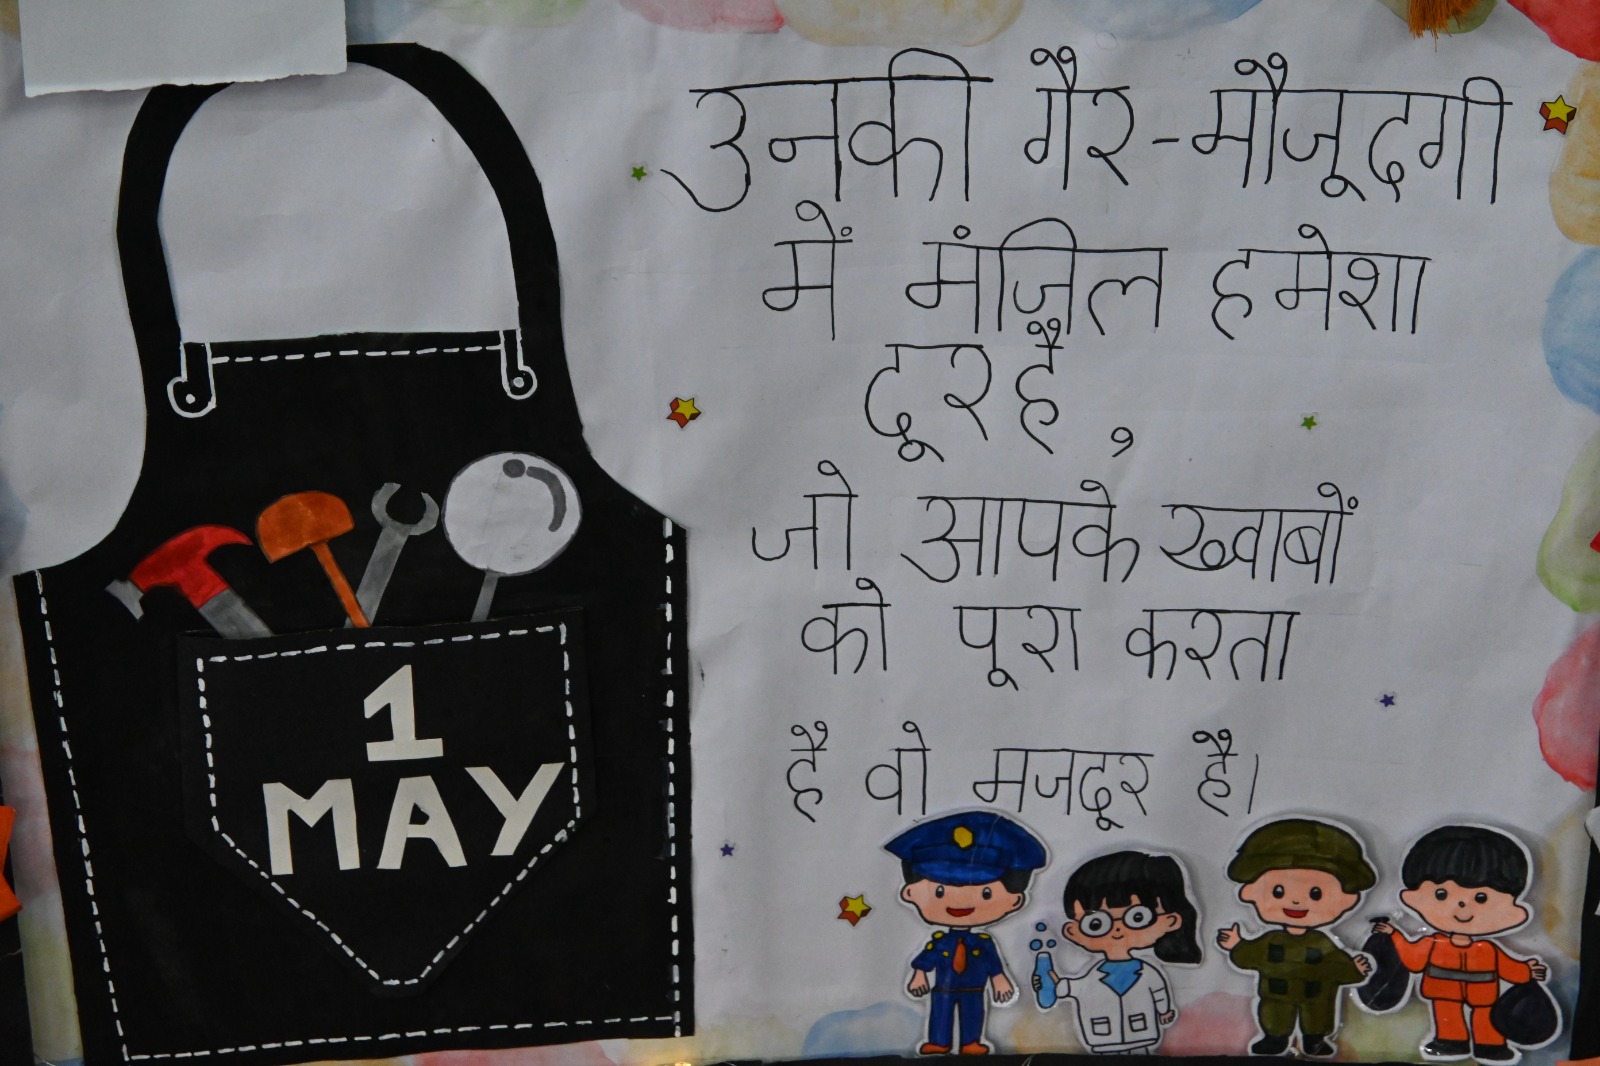 उनकी गैर-मौजूदगी
में मंज़िल हमेशा
दूर है,
जो आपके ख्वाबों
को पूरा करता
है वो मजदूर है।
1
MAY